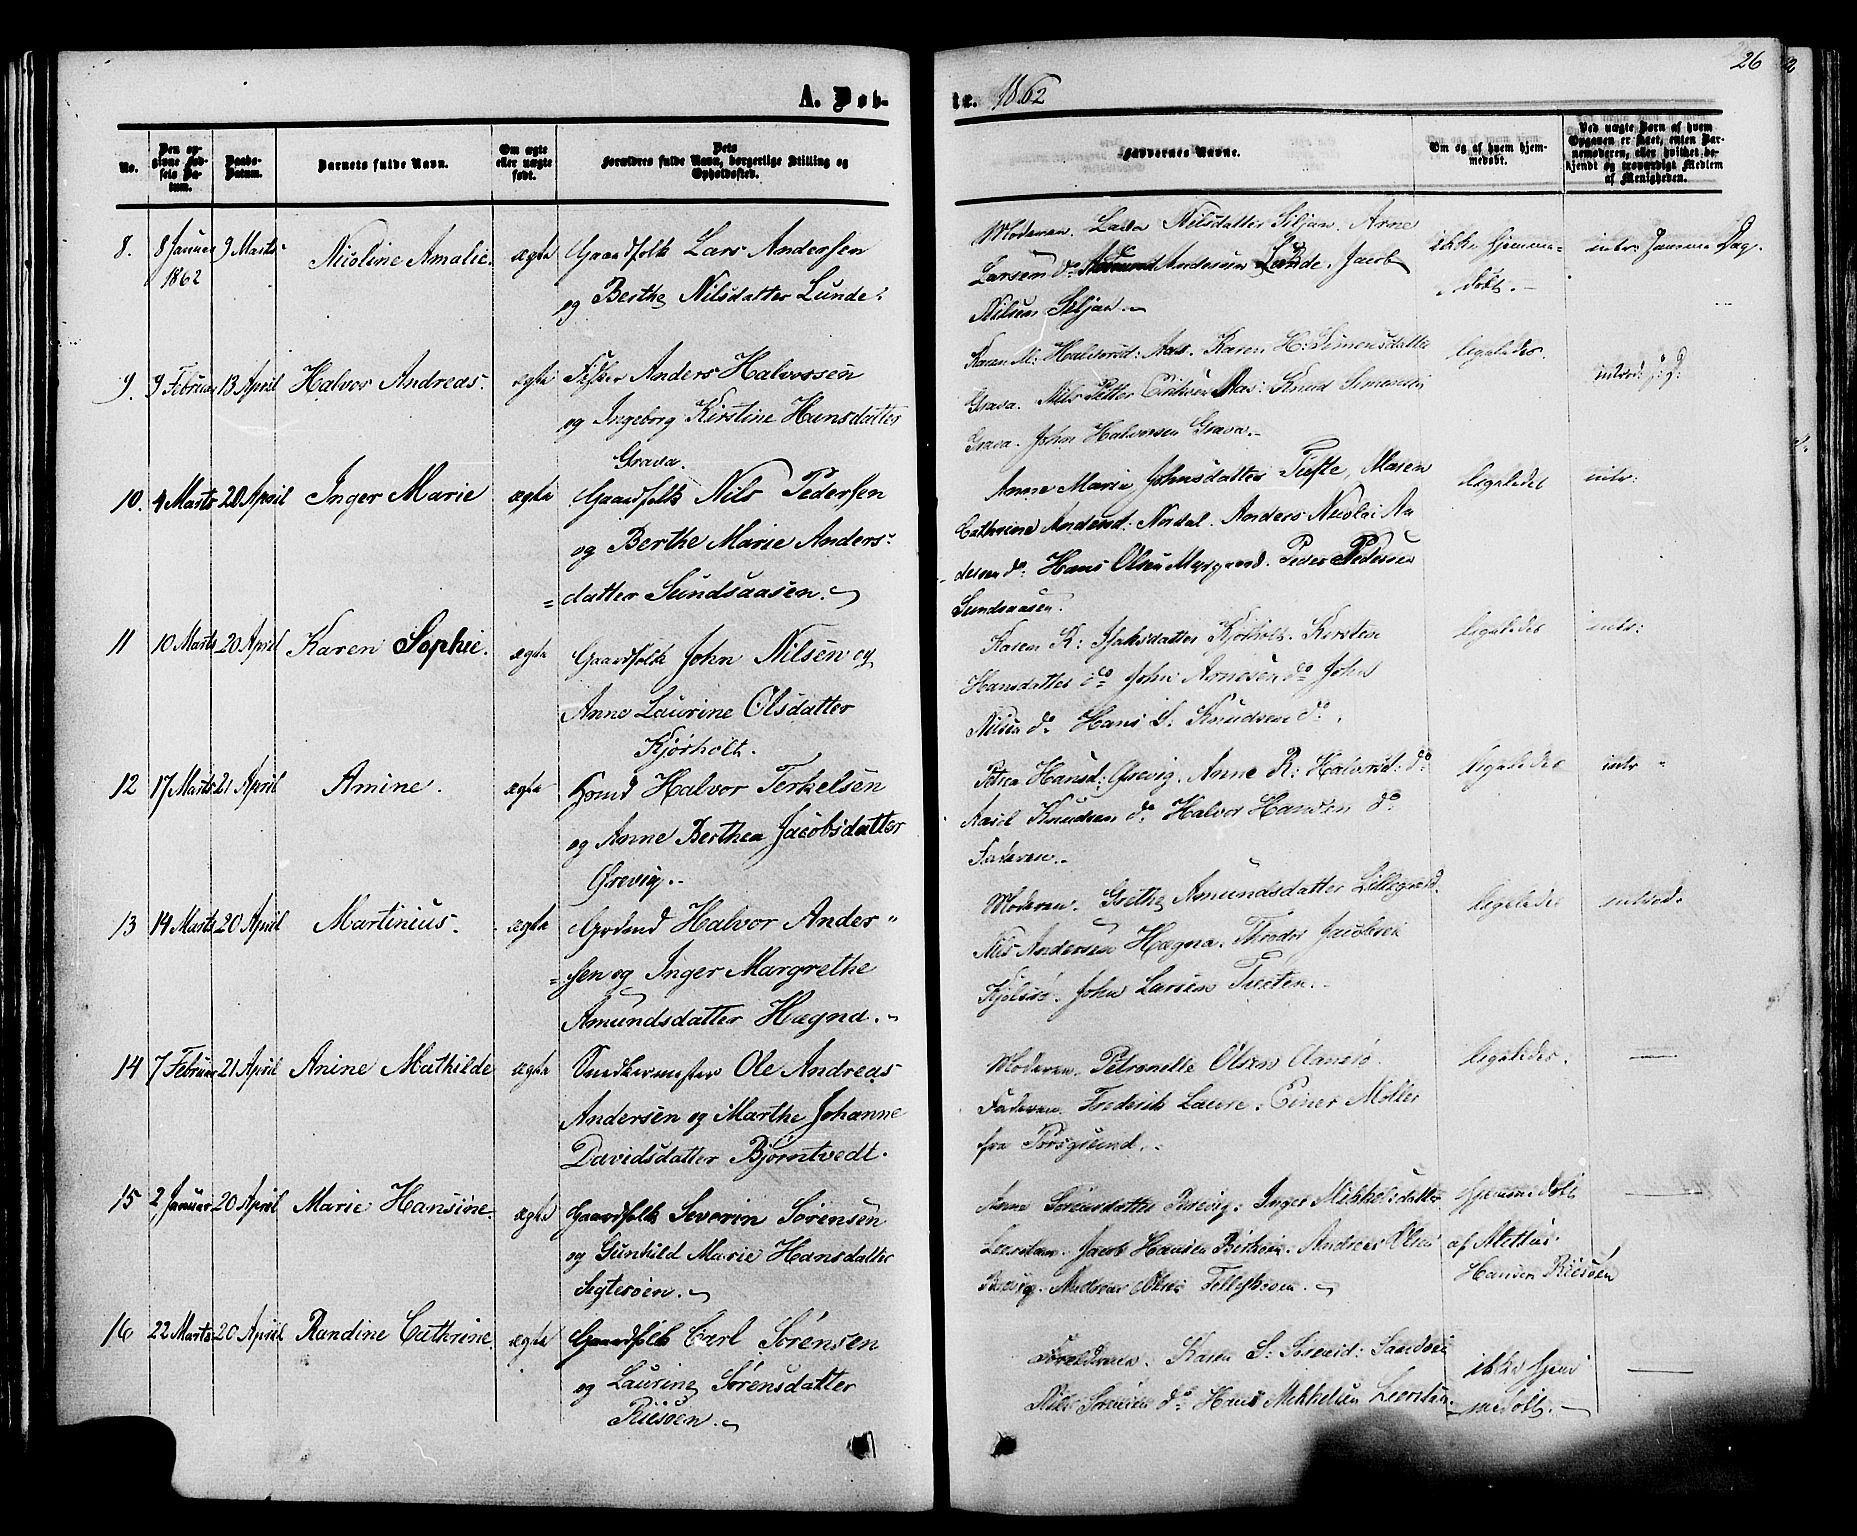 26
A. Døb-
te. 1862
No.
Den opgivne Fødsels Datum.
Daabs-Datum.
Barnets fulde Navn.
Om ægte eller uægte født.
Dets Forældres fulde Navn, borgerlige Stilling og Opholdssted.
Faddernes Navne.
Om og af hvem hjemmedøbt.
Ved uægte Børn af hvem Opgaven er skeet, enten Barnemoderen, eller hvilket bekjendt og troværdigt Medlem af Menigheden.
8. 8 Januar 1862 9 Marts Nicoline Amalie. ægte Gaardfolk Lars Andersen
og Berthe Nilsdatter Lunde.
Moderen. Nilsdatter Siljan. Arne
Larsen do Andersen Lunde. Jacob
Nilsen Siljan.
ikke hjemme-
døbt.
intr: samme Dag.
9. 9 Februar 13 April Halvor Andreas. ægte Anders Halvorsen
og Ingeborg Kirstine Hansdatter
Grava.
Karen M: Halvorsd: Aas. Karen H: Simonsdatter
Grava. Nils Petter Aas: Knud Simonsen
Grava. John Halvorsen Grava.
ligeledes.
introd: s: D:
10. 4 Marts 20 April Inger Marie ægte Gaardfolk Nils Pedersen
og Berthe Marie Anders-
datter Sundsaasen.
Anne Marie Johnsdatter Tufte, Maren
Cathrine Andersd: Nordal. Anders Nicolai An
dersen do: Hans Olsen Myrgaard. Peder Pedersen
Sundsaasen.
ligeledes
intr:
11 10 Marts 20 April Karen Sophie. ægte Gaardfolk John Nilsen og
Anne Laurine Olsdatter
Kjørholt.
Karen K: Isaksdatter Kjørholt. Kirsten
Hansdatter do John Arnesen do John
Nilsen do Hans S. Knudsen do.
ligeledes
intr:
12 17 Marts 21 April Amine. ægte Halvor Terkelsen
og Anne Berthea Jacobsdatter
Ørevig.
Petrea Hansd: Ørevig. Anne R: Halvorsd: do
Axel Knudsen do Halvor Hansen do
Faderen.
ligeledes
intr
13 14 Marts 20 April Martinius. ægte Halvor Ander
sen og Inger Margrethe
Amundsdatter Hægna.
Moderen. Grethe Amundsdatter Lillegaard.
Nils Andersen Hægna. Thrødor Jacobsen
John Larsen Tveten.
ligeledes
introd.
14 7 Februar 21 April Anine Mathilde ægte Snedkermester Ole Andreas
Andersen og Marthe Johanne
Davidsdatter Bjørntvedt.
Moderen. Petronelle Olsen
Faderen. Frederik Laure. Einer Møller
fra Porsgrund.
ligeledes.
15 2 Januar 20 April Marie Hansine. ægte Gaardfolk Severin Sørensen
og Gunhild Marie Hansdatter
Sigtesøen.
Anne Sørensdatter Brevig. Inger Mikkelsdatter
Leerstan. Jacob Hansen Andreas Olsen
Brevig. Andreas Olsen
hjemmedøbt
af Mettus
Hansen Riisøen
16 22 Marts 20 April Randine Cathrine. ægte Gaardfolk Carl Sørensen
og Laurine Sørensdatter
Riisøen.
Forældrene. Karen S: Sørensd: Sandøen
Nils Sørensen do Hans Mikkelsen Leerstan.
ikke hjem
medøbt.